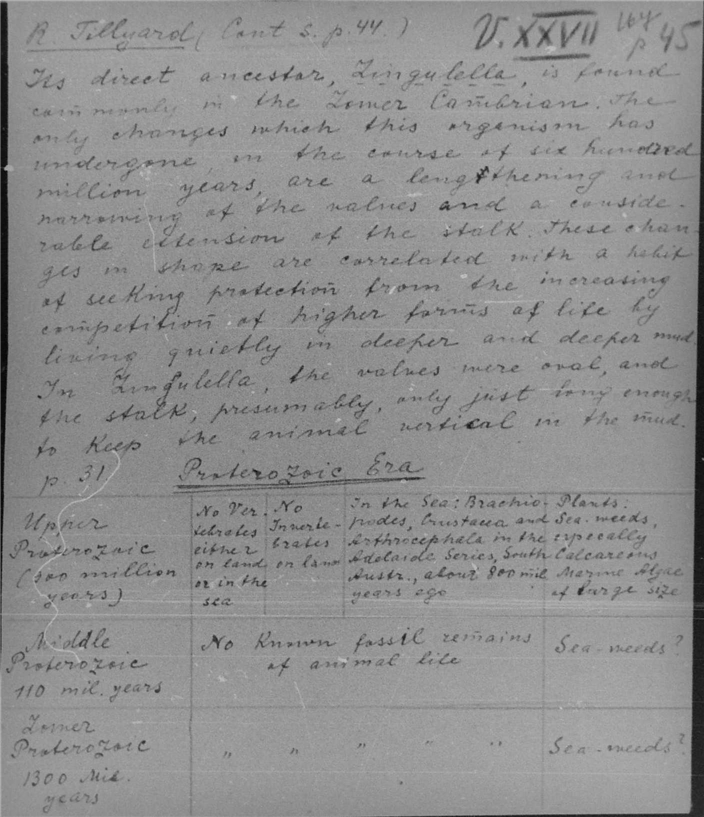 R. Tillyard (Cont S. p. 44.) V. XXVII 164 p 45
Its direct ancestor, Lingulella, is found
commonly in the Lower Cambrian. The
only changes which this organism has
undergone, in the course of six hundred
million years, are a lengthening and
narrowing of the valves and a conside-
rable extension of the stalk. These chan-
ges in shape are correlated with a habit
of seeking protection from the increasing
competition of higher forms of life by
living quietly in deeper and deeper mud.
In Lingulella, the valves were oval, and
the stalk, presumably, only just long enough
to keep the animal vertical in the mud.
p. 31 Proterozoic Era
Upper
Proterozoic
(300 million
years)
No Ver-
tebrates
either
on land
or in the
sea
No
Inverte-
brates
on land
In the Sea: Brachio-
podes, Crustacea and
Arthrocephala in the
Adelaide Series, South
Austr., about 800 mil
years ago
Plants:
Sea-weeds,
especially
Calcareous
Marine Algae
of large size
Middle
Proterozoic
110 mil. years
No Known fossil remains
of animal life
Sea-weeds?
Lower
Proterozoic
1300 Mil.
years
" " " " "
Sea-weeds?